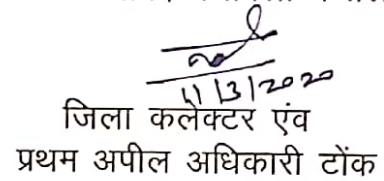 11/3/2020
जिला कलेक्टर एंव
प्रथम अपील अधिकारी टोंक